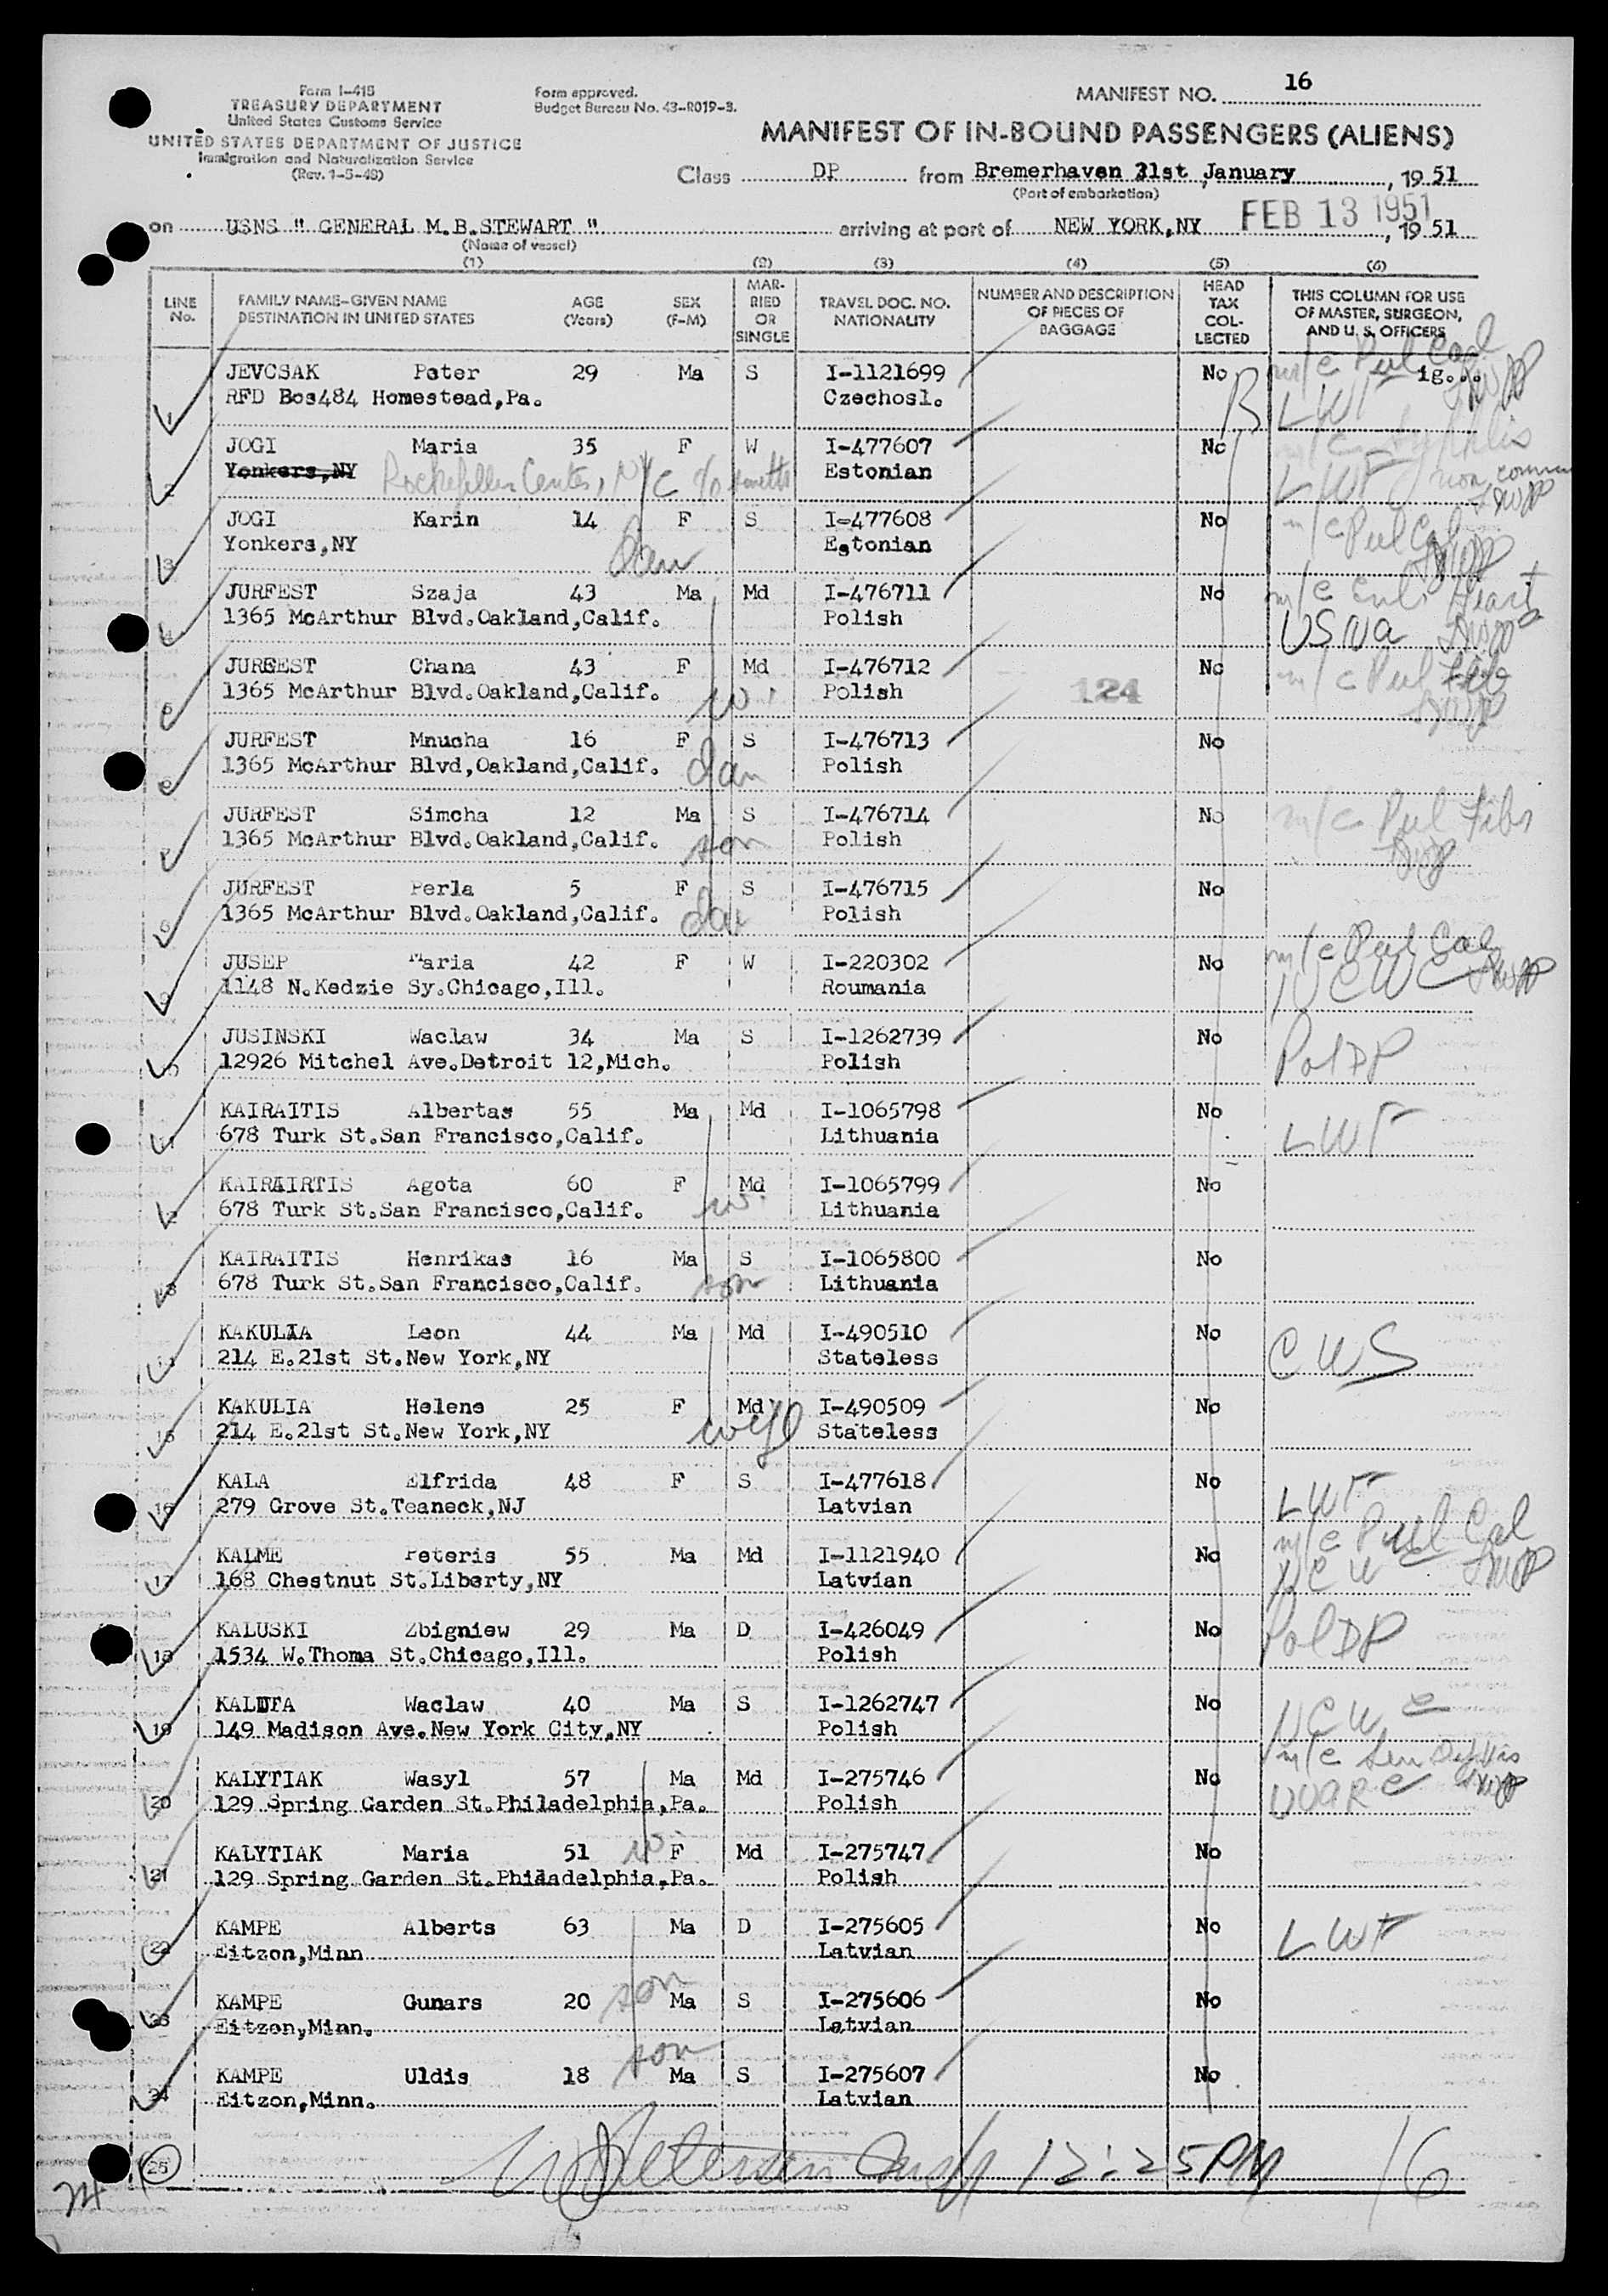 Form I-418
TREASURY DEPARTMENT
United States Customs Service
UNITED STATES DEPARTMENT OF JUSTICE
Immigration and Naturalization Service
(Rev. 1-5-49)
Form approved.
Budget Bureau No. 43-R019-3.
MANIFEST NO. 16
MANIFEST OF IN-BOUND PASSENGERS (ALIENS)
Class DP from Bremerhaven 31st January, 19 51
(Port of embarkation)
on USNS " GENERAL M.B.STEWART " arriving at port of NEW YORK,NY FEB 13 1951, 19 51
(Name of vessel)
(1) (2) (3) (4) (5) (6)
LINE No. FAMILY NAME-GIVEN NAME DESTINATION IN UNITED STATES AGE (Years) SEX (F-M) MARRIED OR SINGLE TRAVEL DOC. NO. NATIONALITY NUMBER AND DESCRIPTION OF PIECES OF BAGGAGE HEAD TAX COLLECTED THIS COLUMN FOR USE OF MASTER, SURGEON, AND U. S. OFFICERS
1 JEVCSAK Peter 29 Ma S I-1121699 No m/c Pul Cal ig...
RFD Bos484 Homestead,Pa. Czechosl. B LWF
2 JOGI Maria 35 F W I-477607 No
Yonkers,NY Rockefeller Center, NYC Estonian LWF
3 JOGI Karin 14 F S I-477608 No m/c Pul Cal
Yonkers,NY dau Estonian
4 JURFEST Szaja 43 Ma Md I-476711 No m/c Enl. Heart
1365 McArthur Blvd.Oakland,Calif. Polish USNA
5 JURFEST Chana 43 F Md I-476712 No m/c Pul Fib
1365 McArthur Blvd.Oakland,Calif. w. Polish 124
6 JURFEST Mnucha 16 F S I-476713 No
1365 McArthur Blvd,Oakland,Calif. dau Polish
7 JURFEST Simcha 12 Ma S I-476714 No m/c Pul Fibr
1365 McArthur Blvd.Oakland,Calif. son Polish
8 JURFEST Perla 5 F S I-476715 No
1365 McArthur Blvd.Oakland,Calif. dau Polish
9 JUSEP Maria 42 F W I-220302 No m/c Pul Cal
1148 N.Kedzie Sy.Chicago,Ill. Roumania NCWC
10 JUSINSKI Waclaw 34 Ma S I-1262739 No Pol DP
12926 Mitchel Ave.Detroit 12,Mich. Polish
11 KAIRAITIS Albertas 55 Ma Md I-1065798 No LWF
678 Turk St.San Francisco,Calif. Lithuania
12 KAIRAIRTIS Agota 60 F Md I-1065799 No
678 Turk St.San Francisco,Calif. w. Lithuania
13 KAIRAITIS Henrikas 16 Ma S I-1065800 No
678 Turk St.San Francisco,Calif. son Lithuania
14 KAKULIA Leon 44 Ma Md I-490510 No CWS
214 E.21st St.New York,NY Stateless
15 KAKULIA Helene 25 F Md I-490509 No
214 E.21st St.New York,NY wife Stateless
16 KALA Elfrida 48 F S I-477618 No LWF
279 Grove St.Teaneck,NJ Latvian
17 KALME Peteris 55 Ma Md I-1121940 No m/c Pul Cal
168 Chestnut St.Liberty,NY Latvian
18 KALUSKI Zbigniew 29 Ma D I-426049 No Pol DP
1534 W.Thoma St.Chicago,Ill. Polish
19 KALUTA Waclaw 40 Ma S I-1262747 No NCWC
149 Madison Ave.New York City,NY Polish
20 KALYTIAK Wasyl 57 Ma Md I-275746 No m/c
129 Spring Garden St.Philadelphia,Pa. Polish UUARC
21 KALYTIAK Maria 51 w. F Md I-275747 No
129 Spring Garden St.Philadelphia,Pa. Polish
22 KAMPE Alberts 63 Ma D I-275605 No LWF
Eitzon,Minn Latvian
23 KAMPE Gunars 20 son Ma S I-275606 No
Eitzen,Minn. Latvian
24 KAMPE Uldis 18 son Ma S I-275607 No
Eitzon,Minn. Latvian
25 12:25 PM 16
24